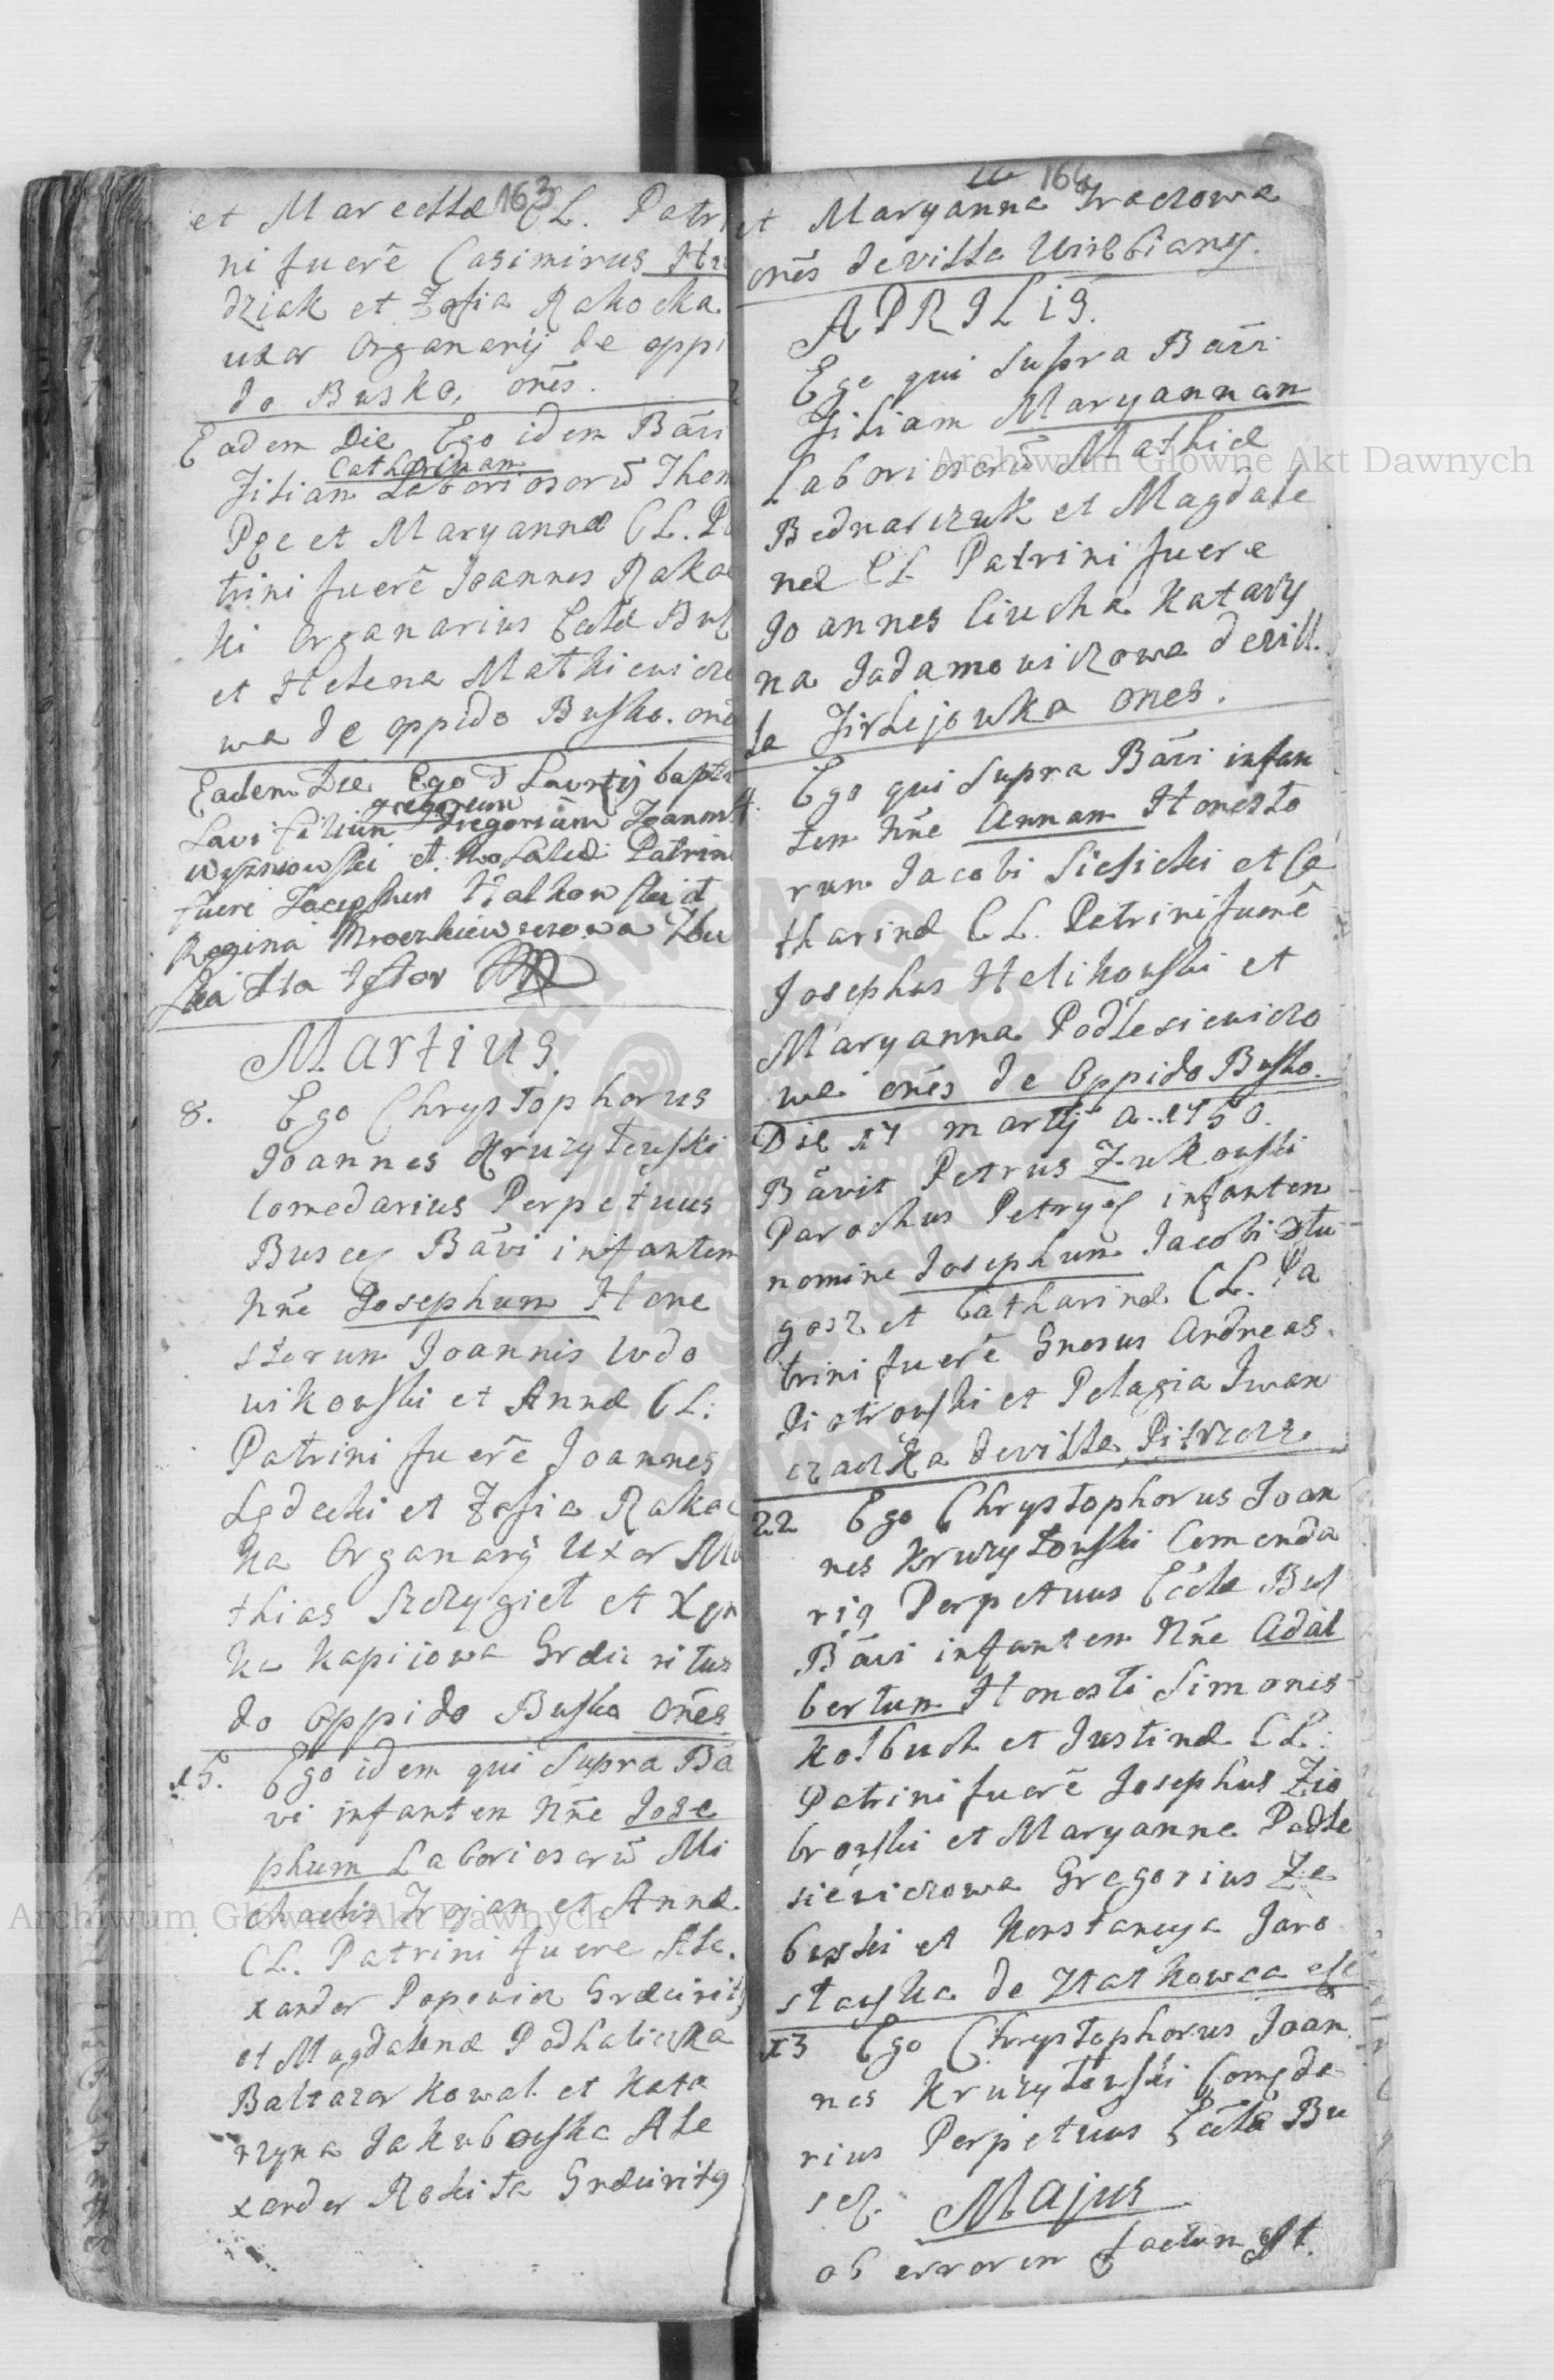 163
et Marcellæ CL. Patri
ni fuerē Casimirus Hu
dziak et Zofia Rakocka
uxor Organarij de oppi
do Busko, onēs.
Eadem Die Ego idem Bāvi
Catharinam
Filiam Laboriosorū Thom
et Maryannæ CL. Pa
trini fuerē Joannes Rakoc
ki Organarius Eccłæ Bus
et Helena Mathiewicz
wa de oppido Busko. onē
Eadem Die Ego baptiza
gregorium
lavi filium Gregorium Joannis
Wyszniowski et Rosaliæ Patrin
fuere Josephus Halkowski et
Regina
Martius.
8. Ego Chrystophorus
Joannes Kruzytowski
Comedarius Perpetuus
Buscen Bāvi infantem
Nn̄e Josephum Hone
storum Joannis Wdo
wikowski et Annæ CL:
Patrini fuerē Joannes
Ledecki et Zofia Rakoc
ka Organarij Uxor Ma
thias Szczygieł et
ka Kapijowa Græci ritus
do Oppido Busko Onēs
15. Ego idem qui supra Bā
vi infantem Nn̄e Jose
phum Laboriosorū Mi
chaelis Trojan et Annæ
CL. Patrini fuere Ale.
xander Popowicz Græci rit9
et Magdalena Podhalicka
Baltazar Kowal et Kata
rzyna Jakubowska Ale
xander Rokita Græci rit9
164
et Maryanna Traczowa
onēs de villa Wierblany.
APRILIS.
Ego qui supra Bāvi
Filiam Maryannam
Laboriosorū Mathiæ
Bednarczuk et Magdale
næ CL Patrini fuere
Joannes Ciucha Katarzy
na Jadamowiczowa de vill.
la Firlejowka ones.
4. Ego qui supra Bāvi infan
tem Nn̄e Annam Honesto
rum Jacobi Sielicki et Ca
tharinæ CL. Patrini fuerē
Josephus Helikowski et
Maryanna Podlesiewiczo
wa onēs de Oppido Busko.
Die 17 martij A. 1750.
Bāvit Petrus Zukowski
Parochus Petrycz infantem
nomine Josephum Jacobi Dłu
gosz et Catharinæ CL. Pa
trini fuerē Gnosus Andreas
Piotrowski et Pelagia Iwan
czaczka de villa Pitrycz
22 Ego Chrystophorus Joan
nes Kruzytowski Comenda
ri9 Perpetuus Eccłæ Bus
Bāvi infantem Nn̄e Adal
bertum Honesti Simonis
Kołbuch et Justinæ CL.:
Patrini fuerē Josephus Zio
browski et Maryanna Podle
siewiczowa Gregorius Ze
browski et Konstancya Jaro
sławska de
23 Ego Chrystophorus Joan
nes Kruzytowski Comeda
rius Perpetuus Eccłæ Bu
scen.
Majus
ob errorem factum est.
Archiwum Główne Akt Dawnych
Archiwum Główne Akt Dawnych